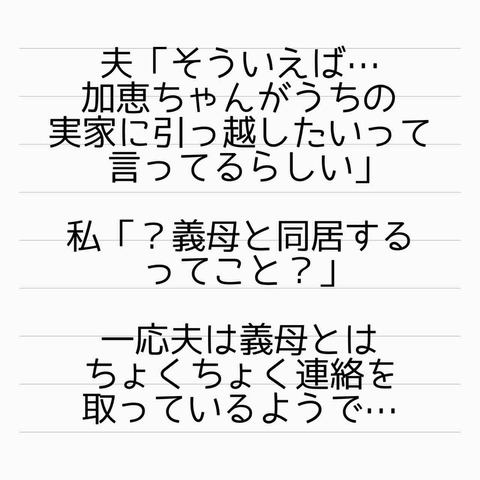 夫「そういえば…
加恵ちゃんがうちの
実家に引っ越したいって
言ってるらしい」
私「？義母と同居する
ってこと？」
一応夫は義母とは
ちょくちょく連絡を
取っているようで…